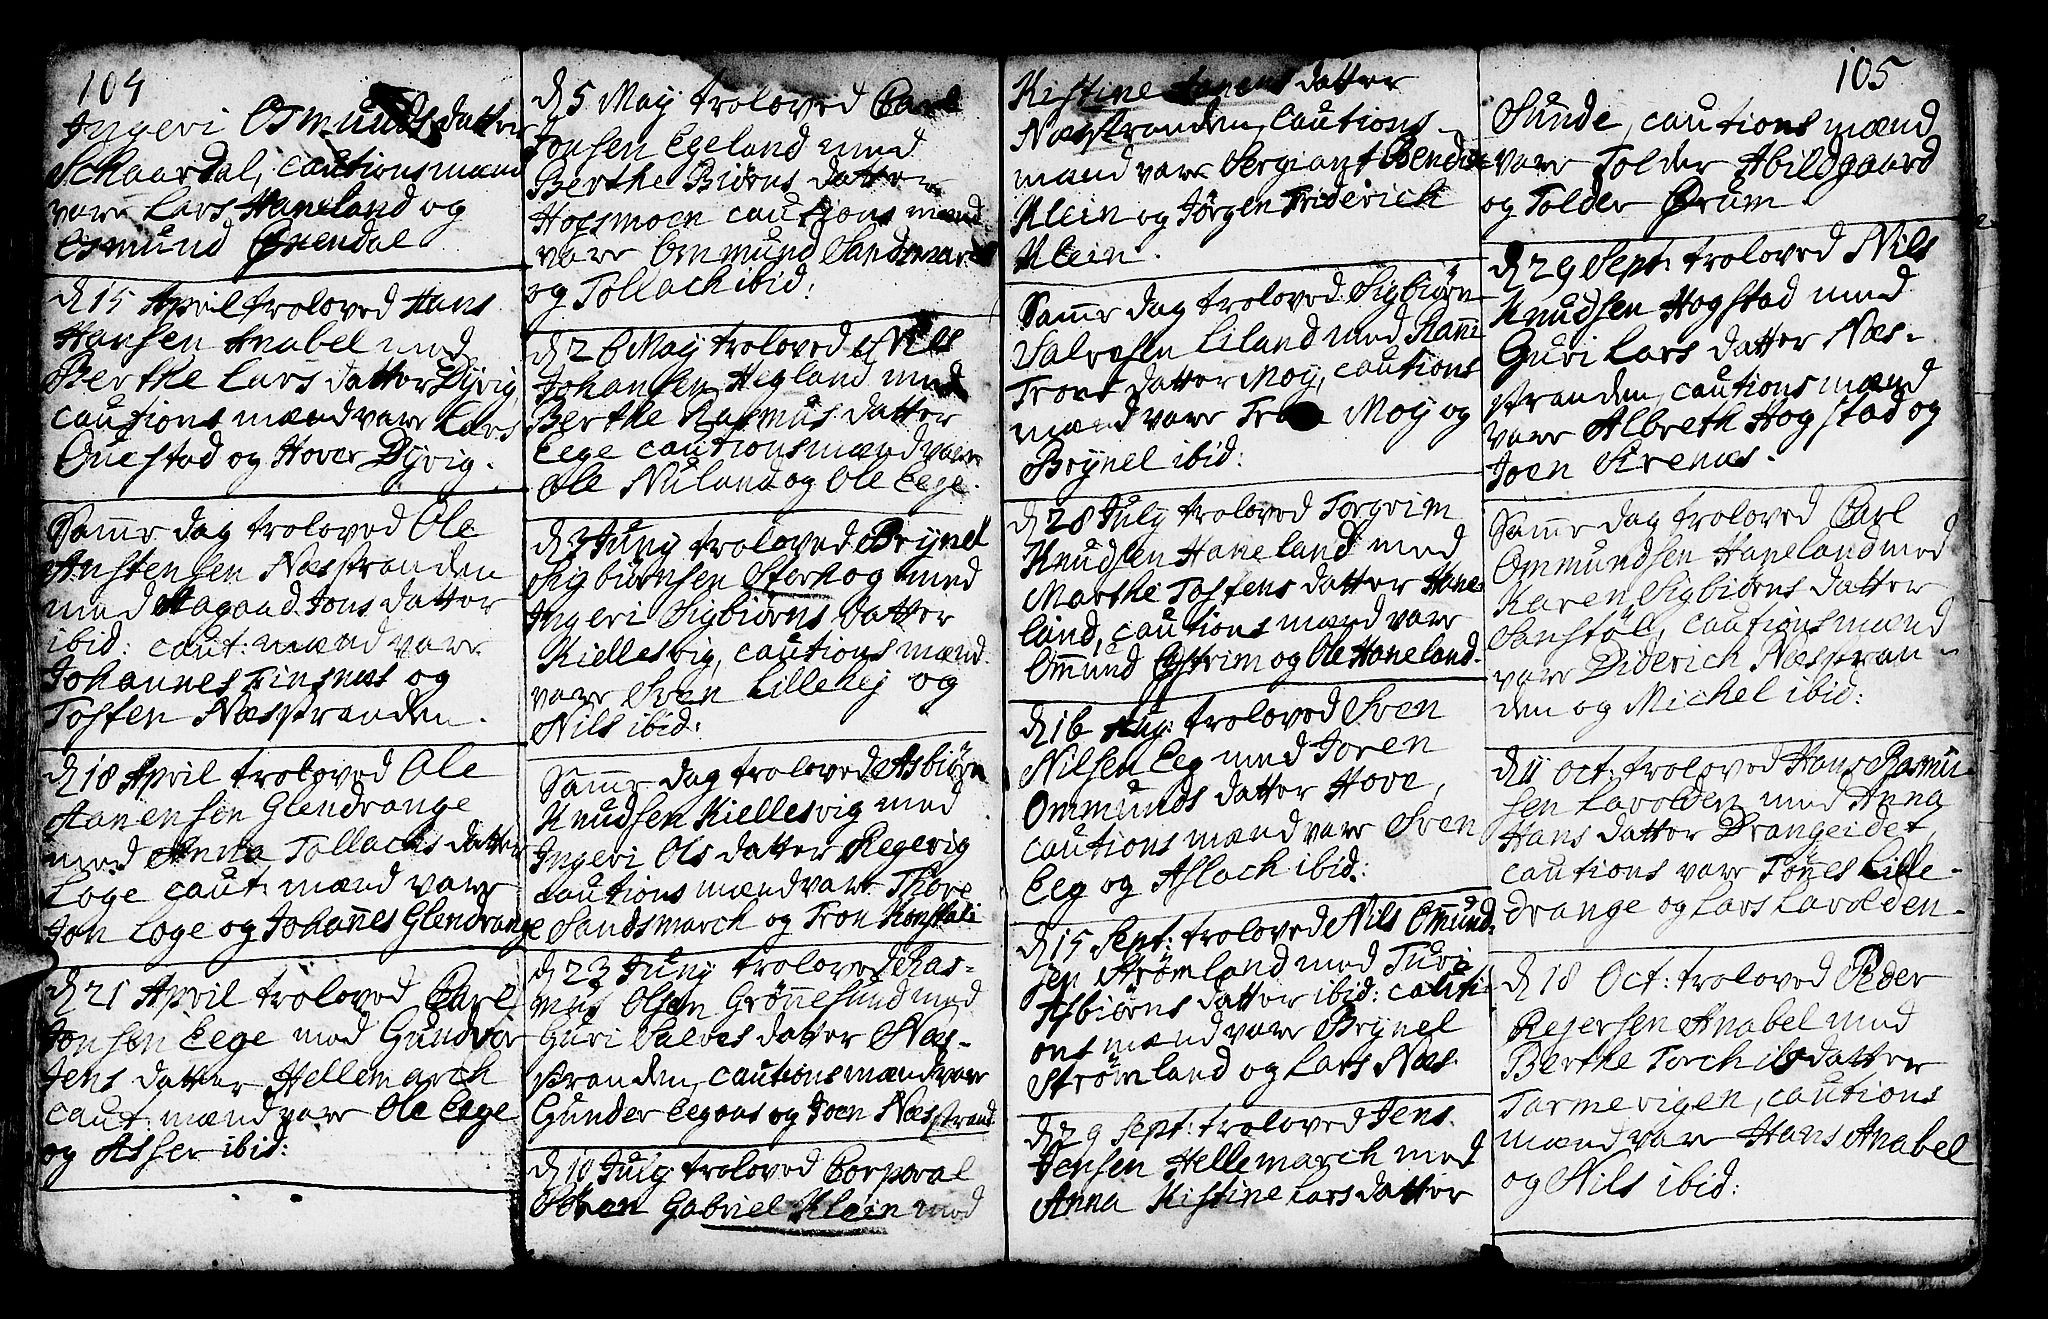 104
Ingeri Osmunds datter
Schaardal, cautions mænd
vare Lars Haneland og
Osmund Ørendal
d 15 April troloved Hans
Hansen Anabel med
Berthe Lars datter Dÿvig
cautions mænd vare Lars
Ouestad og Hover Dÿvig.
Samme dag troloved Ole
Anstensen Næstranden
med Aagaad Jons datter
ibid: caut: mænd vare
Johannes Tinsnæs og
Tosten Næstranden.
d 18 April troloved Ole
Aanensen Glendrange
med Anna Tollachs datter
Loge caut: mænd vare
Jon Loge og Johannes Glendrange
d 21 April troloved Carl
Jonsen Eege med Gundvor
Jens datter Hellemarch
caut: mænd vare Ole Eege
og Asser ibid:
d 5 Maÿ troloved Carl
Jonsen Egeland med
Berthe Biørns datter
Hofsmoen cautions mænd
vare Ommund Sandsmarch
og Tollach ibid:
d 26 Maÿ troloved Nils
Johansen Hegland med
Berthe Rasmus datter
Eege cautions mænd vare
Ole Nuland og Ole Eege.
d 3 Junÿ troloved Brÿnel
Sigbiørnsen Sterkog med
Ingeri Sigbiørns datter
Kiellesvig, cautions mænd
vare Sven Lillehej og
Nils ibid:
Samme dag troloved Asbiørn
Knudsen Kiellesvig med
Ingeri Ols datter Regevig
cautions mænd vare Thore
Sandsmarch og Tron
d 23 Junÿ troloved Ras-
mus Olsen Grønnesund med
Guri Salves datter Næs-
stranden, cautions mænd vare
Gunder Eegaas og Joen Næsstrand.
d 10 Julÿ troloved Corporal
Søren Gabriel Klein med
Kistine datter
Næsstranden, cautions
mænd vare Sergiant Bendix
Klein og Jørgen Friderich
Klein.
Samme dag troloved Sigbiørn
Salvesen Liland med Ranni
Trons datter Moÿ, cautions
mænd vare Tron Moÿ og
Brÿnel ibid:
d 28 Julÿ troloved Torgrim
Knudsen Haneland med
Marthe Tostens datter Hane-
land, cautions mænd vare
Ommund Østrim og Ole Haneland.
d 16 Aug: troloved Sven
Nilsen Eeg med Joren
Ommunds datter Hove,
cautions mænd vare Sven
Eeg og Aslach ibid:
d 15 Sept: troloved Nils Ommund-
sen Strømland med Turi
Asbiørns datter ibid: cauti-
ons mænd vare Brÿnel
Strømland og Lars Næs.
d 29 Sept: troloved Jens
Jensen Hellemarch med
Anna Kistine Lars datter
105
Sunde, cautions mænd
vare Tolder Abildgaard
og Tolder Ørum
d 29 Sept: troloved Nils
Knudsen Hogstad med
Guri Lars datter Næs-
stranden, cautions mænd
vare Albreth Hogstad og
Joen Sirenæs.
Samme dag troloved Carl
Ommundsen Haneland med
Karen Sigbiørns datter
Sanstøl, cautions mænd
vare Diderich Næsstran-
den og Michel ibid:
d 11 Oct: troloved Hans Rasmu-
sen Lavolden med Anna
Hans datter Drangeidet,
cautions vare Tønnes Lille-
drange og Lars Lavolden.
d 18 Oct: troloved Peder
Rejersen Anabel med
Berthe Torchils datter
Tarmevigen, cautions
mænd vare Hans Anabel
og Nils ibid: